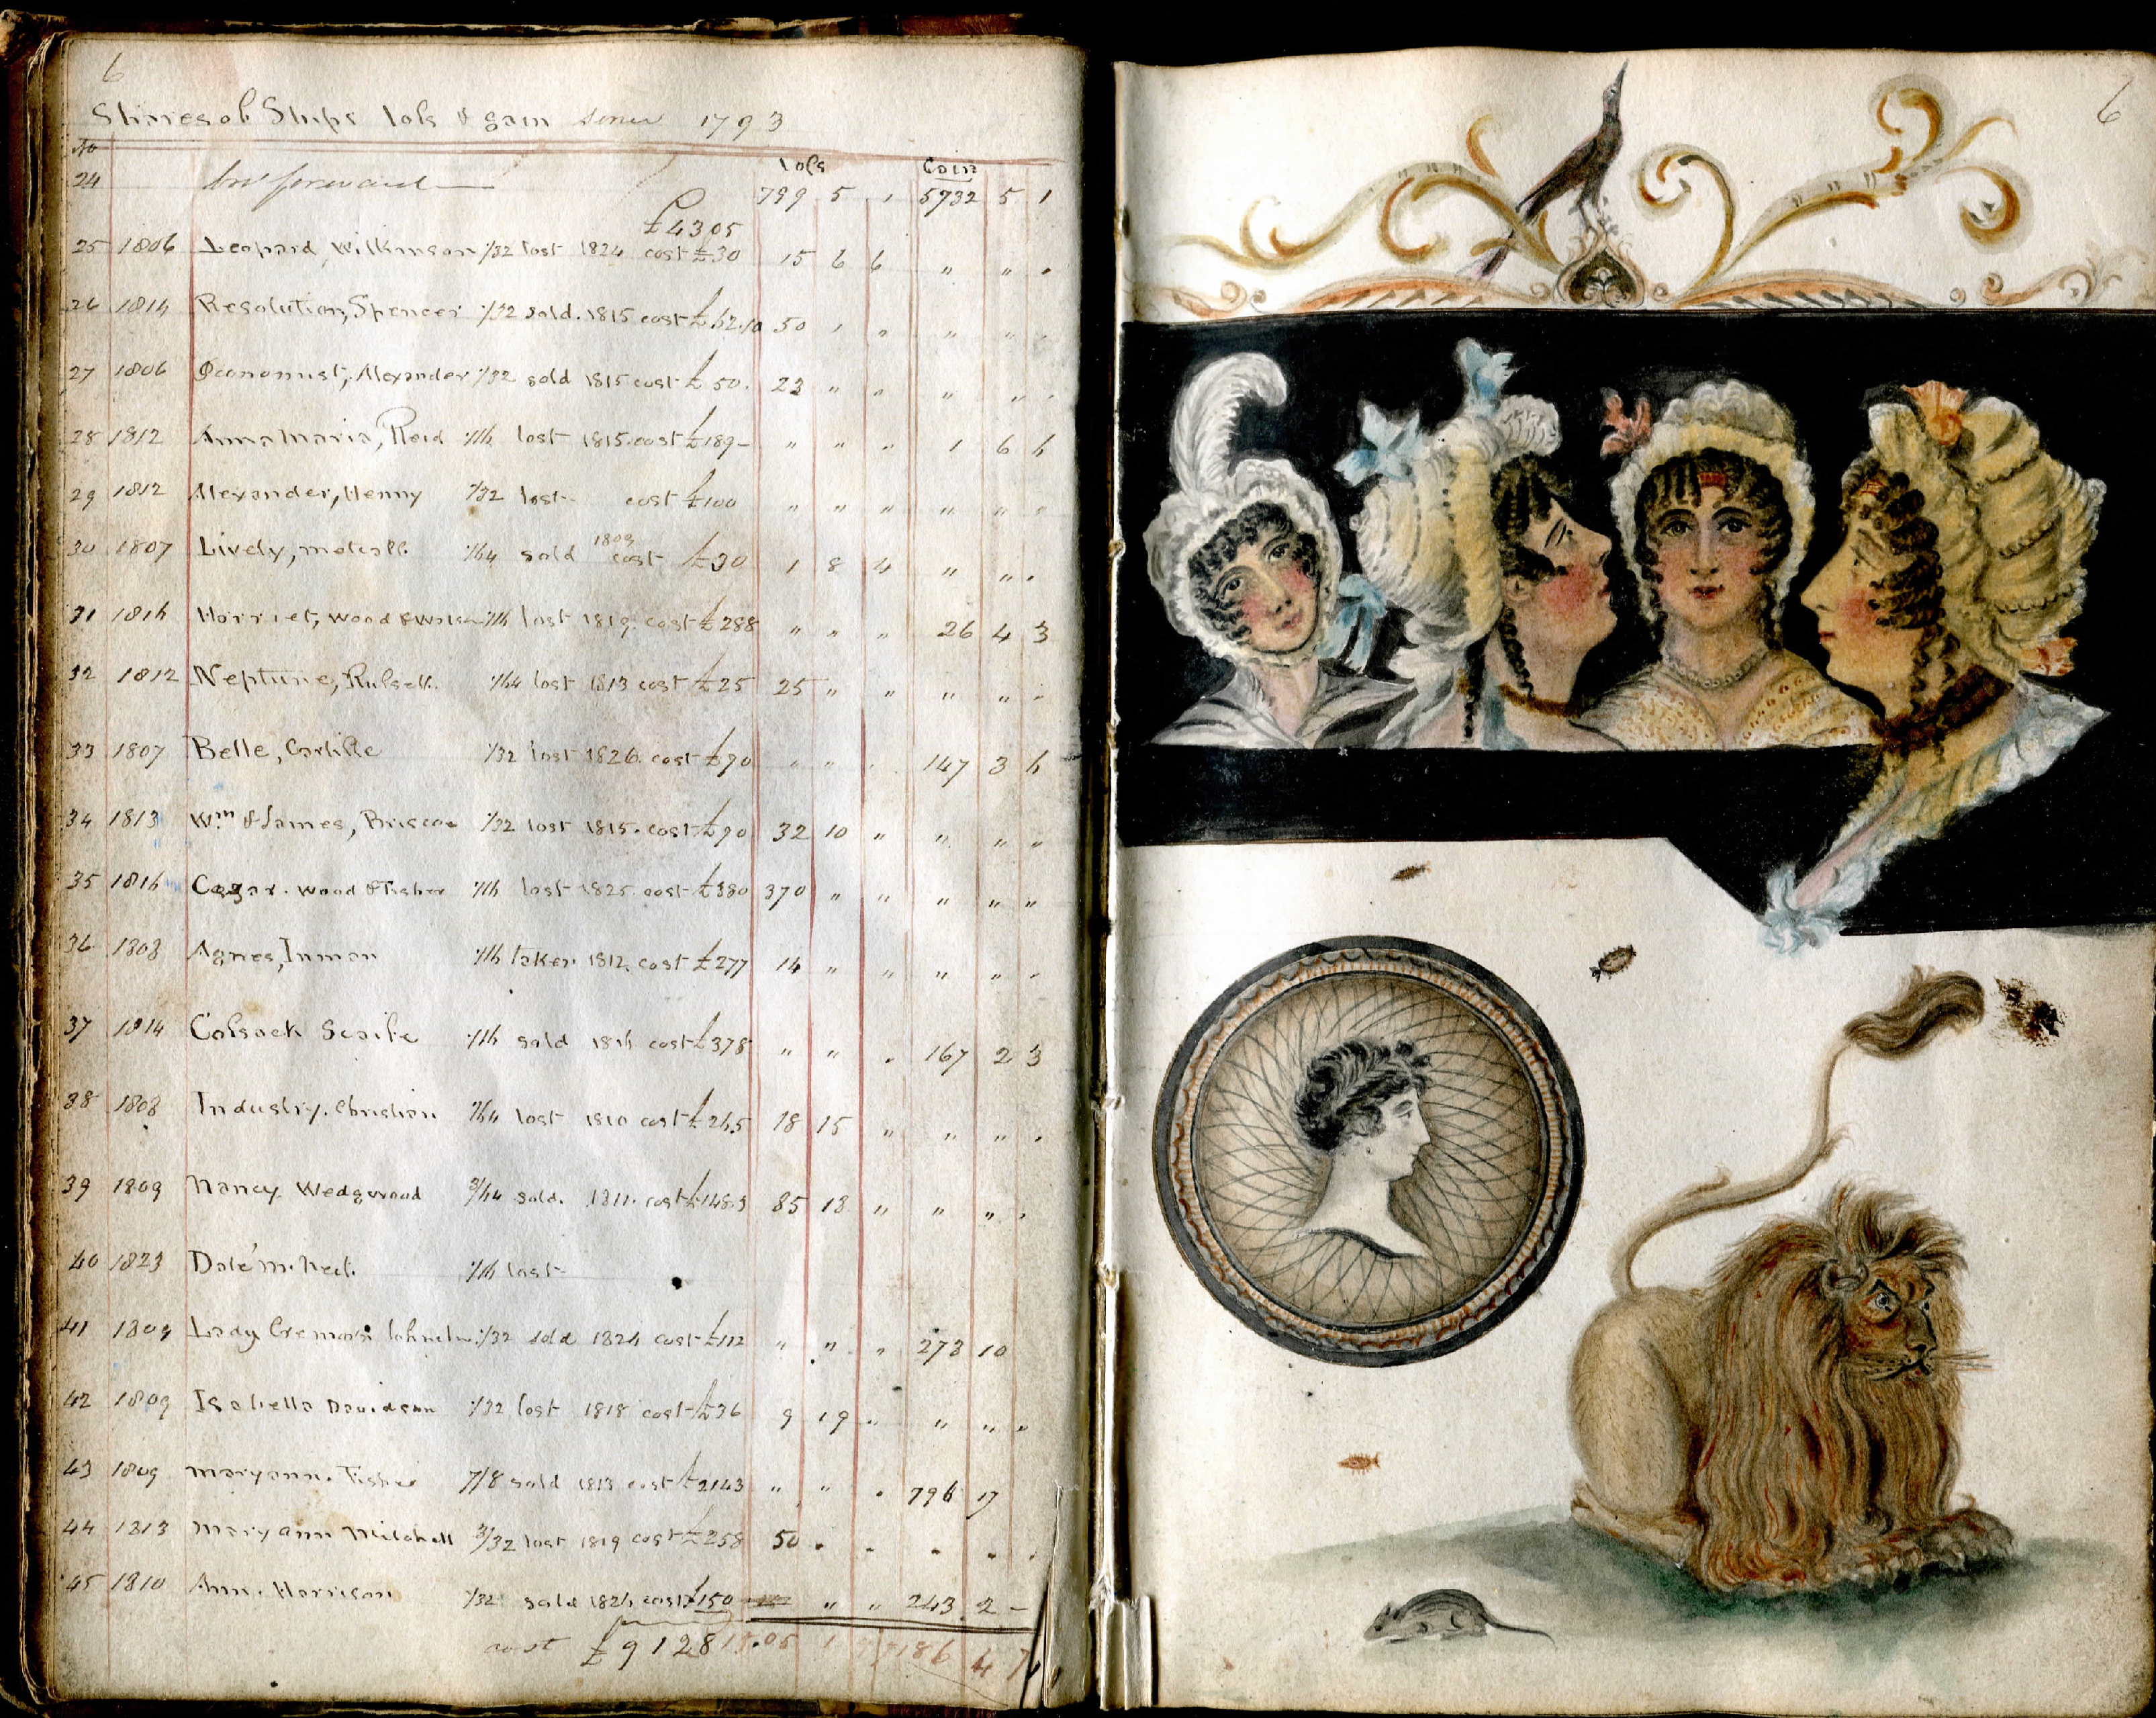 6
Shares of Ships loss & gain since 1793
No
loss Gain
24 bro' forward 799 5 " 5732 5 1
£4305
25 1806 Leopard, Wilkinson 1/32 lost 1824 cost £30 15 6 6 " " "
26 1814 Resolution, Spencer 1/32 sold. 1815 cost £62.10 50 1 " " " "
27 1806 Oeconomist, Alexander 1/32 sold 1815 cost £50. 23 " " " " "
28 1812 Anna Maria, Reid 1/16 lost 1815. cost £189 - " " " 1 6 6
29 1812 Alexander, Henny 1/32 lost cost £100 " " " " " "
30 1807 Lively, Metcalf. 1/64 sold 1809 cost £30 1 8 4 " " "
31 1816 Harriet, Wood & 1/16 lost 1819. cost £288 " " " 26 4 3
32 1812 Neptune, Russell. 1/64 lost 1813 cost £25 25 " " " " "
33 1807 Belle, Carlisle 1/32 lost 1826. cost £90 " " " 147 3 6
34 1813 Wm & James, Briscoe 1/32 lost 1815. cost £90 32 10 " " " "
35 1816 Caesar. Wood & Fisher 1/16 lost 1825. cost £380 370 " " " " "
36 1808 Agnes, Inman 1/16 taken 1812. cost £277 14 " " " " "
37 1814 Cossack 1/16 sold 1816 cost £378 " " " 167 2 3
38 1808 Industry. Christian /64 lost 1810 cost £265 18 15 " " " "
39 1809 Nancy Wedgwood 3/64 sold. 1811. cost £148.3 85 13 " " " "
40 1823 1/16 lost
41 1809 Lady 1/32 sold 1824 cost £112 " " " 273 10
42 1809 Isabella Davidson 1/32 lost 1818 cost £36 9 19 " " " "
43 1809 Maryann. Fisher 7/8 sold 1813 cost £2143 " " " 796 17
44 1813 Mary Ann Mitchell 3/32 lost 1819 cost £258 50 " " " " "
45 1810 Ann. Harrison 1/32 sold 1826 cost £150 " " 243 2 -
cost £9128 1 7186 4
6